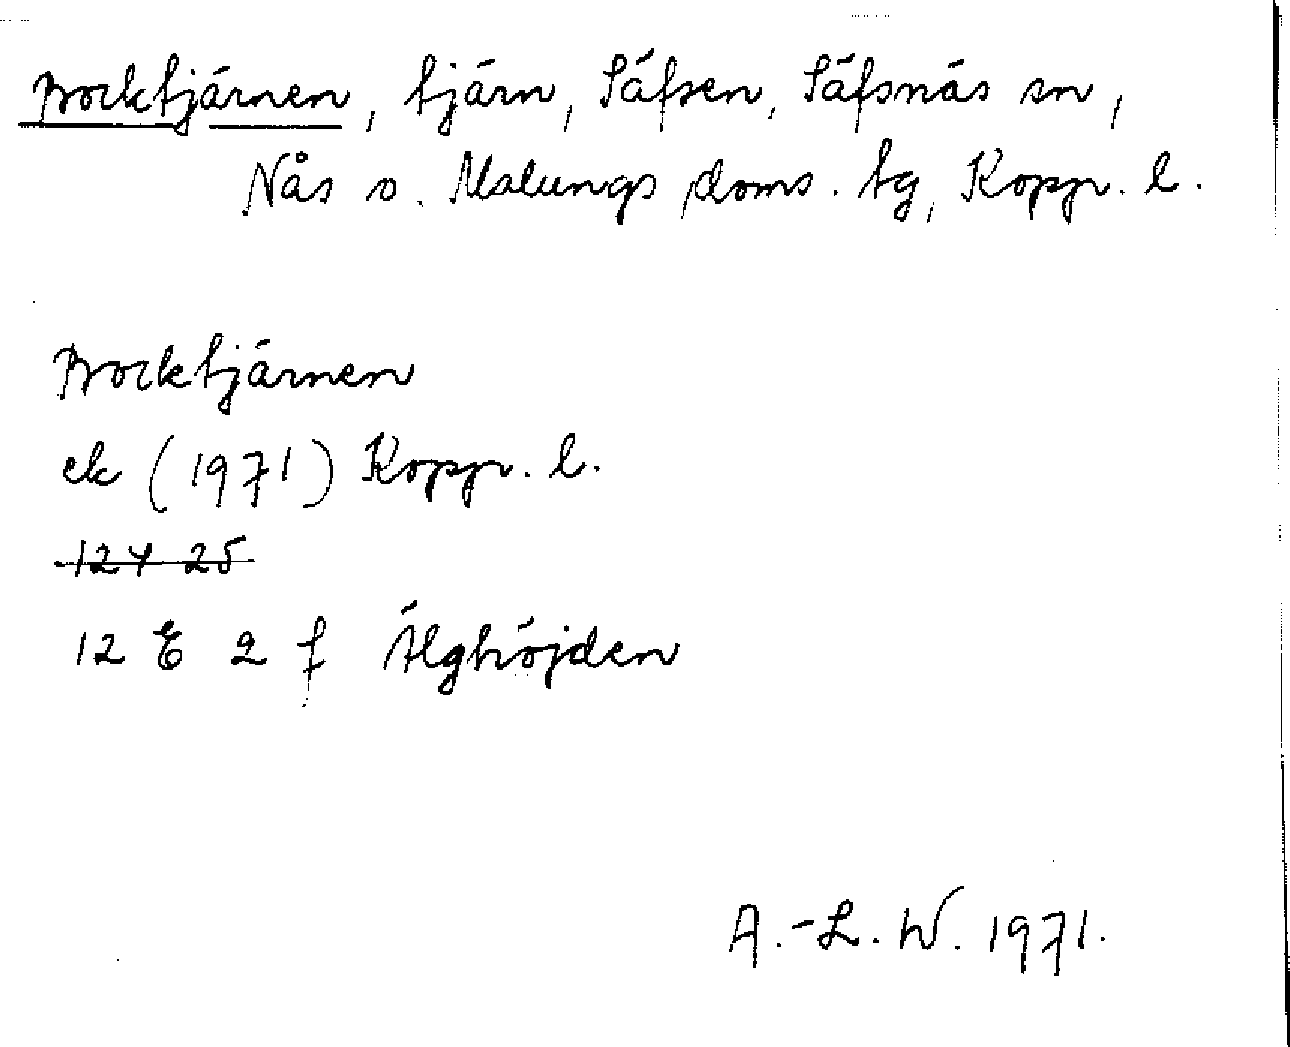 Bocktjärnen, tjärn, Säfsen, Säfsnäs sn,
Nås o. Malungs doms. tg, Kopp. l.
Bocktjärnen
ek (1971) Kopp. l.
12 E 2 f Älghöjden
A.-L. W. 1971.